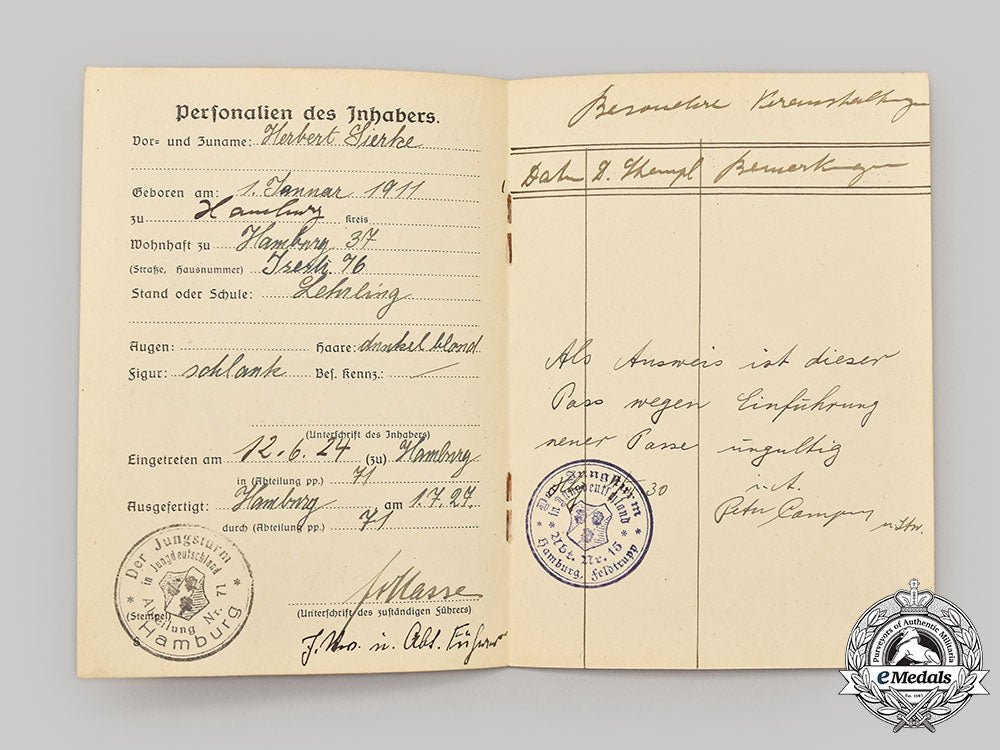 Personalien des Inhabers.
Vor- und Zuname: Herbert Sierke
Geboren am: 1. Januar 1911
zu Hamburg Kreis
Wohnhaft zu Hamburg 37
(Straße, Hausnummer) Isestr. 76
Stand oder Schule: Lehrling
Augen: Haare: dunkel blond
Figur: schlank Bes. Kennz.: —
(Unterschrift des Inhabers)
Eingetreten am 12.6.24 (zu) Hamburg
in (Abteilung pp.) 71
Ausgefertigt: Hamburg am 1.7.27.
durch (Abteilung pp.) 71
Der Jungsturm
in Jungdeutschland
(Stempel)
Abteilung Nr. 71
Hamburg
(Unterschrift des zuständigen Führers)
u. Abt. Führer
Besondere Veranstaltungen
Datum D. Stempl Bemerkungen
Als Ausweis ist dieser
Pass wegen Einführung
neuer Pässe ungültig
30 u.A.
Der Jungsturm
in Jungdeutschland
Abt. Nr. 15
Hamburg, Feldtrupp
Purveyors of Authentic Militaria
eMedals